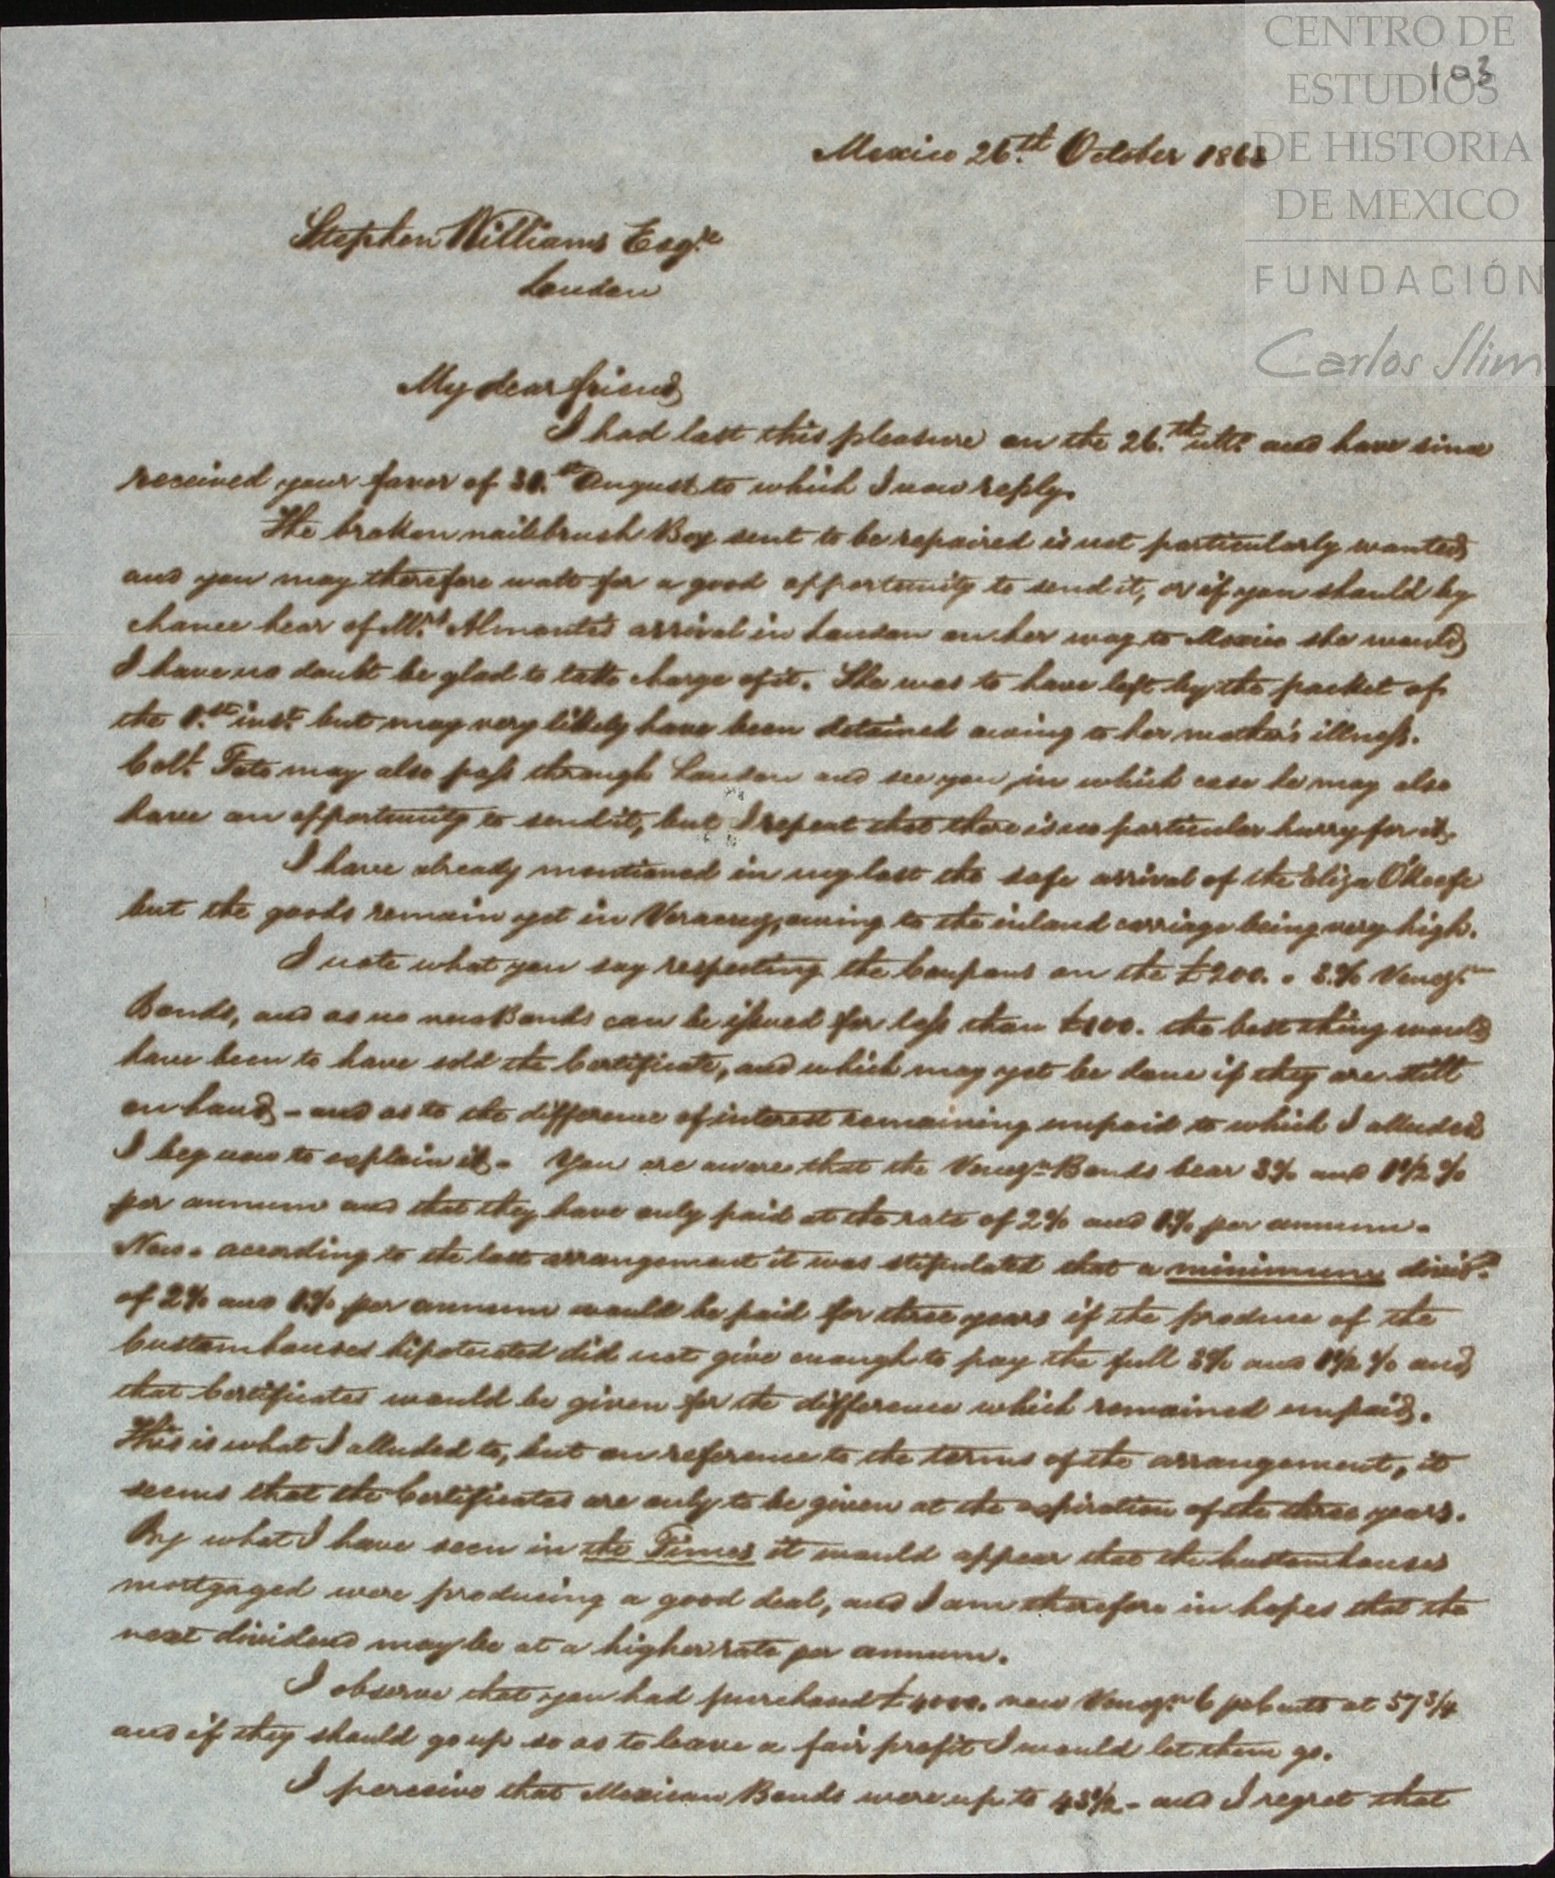 CENTRO DE
ESTUDIOS
DE HISTORIA
DE MEXICO
FUNDACIÓN
Carlos Slim
103
Mexico 26.th October 186
Stephen Williams Esq.re
London
My dear friend
I had last this pleasure on the 26.th ulto. and have since
received your favor of 30.th August to which I now reply.
The broken nailbrush Box sent to be repaired is not particularly wanted
and you may therefore wait for a good opportunity to send it, or if you should by
chance hear of Mrs. Almonte's arrival in London on her way to Mexico she would
I have no doubt be glad to take charge of it. She was to have left by the packet of
the 1.st inst. but may very likely have been detained owing to her mother's illness.
Coll. Tato may also pass through London and see you, in which case he may also
have an opportunity to send it, but I repeat that there is no particular hurry for it.
I have already mentioned in my last the safe arrival of the Eliza O'Keefe
but the goods remain yet in Veracruz, owing to the inland carriage being very high.
I note what you say respecting the Coupons on the £200. 3.% Venez.n
Bonds, and as no new Bonds can be issued for less than £100. the best thing would
have been to have sold the Certificate, and which may yet be done if they are still
on hand – and as to the difference of interest remaining unpaid to which I alluded
I beg now to explain it. You are aware that the Venez.n Bonds bear 3% and 1 1/2 %
per annum and that they have only paid at the rate of 2% and 1% per annum.
Now. according to the last arrangement it was stipulated that a minimum divid.d
of 2% and 1% per annum would be paid for three years if the produce of the
Customhouses hipotecated did not give enough to pay the full 3% and 1 1/2 % and
that Certificates would be given for the difference which remained unpaid.
This is what I alluded to, but on reference to the terms of the arrangement, it
seems that the Certificates are only to be given at the expiration of the three years.
By what I have seen in the Times it would appear that the Customhouses
mortgaged were producing a good deal, and I am therefore in hopes that the
next dividend may be at a higher rate per annum.
I observe that you had purchased £4000. new Venez.n 6 p Cents at 57 3/4
and if they should go up so as to leave a fair profit I would let them go.
I perceive that Mexican Bonds were up to 43 1/2 - and I regret that